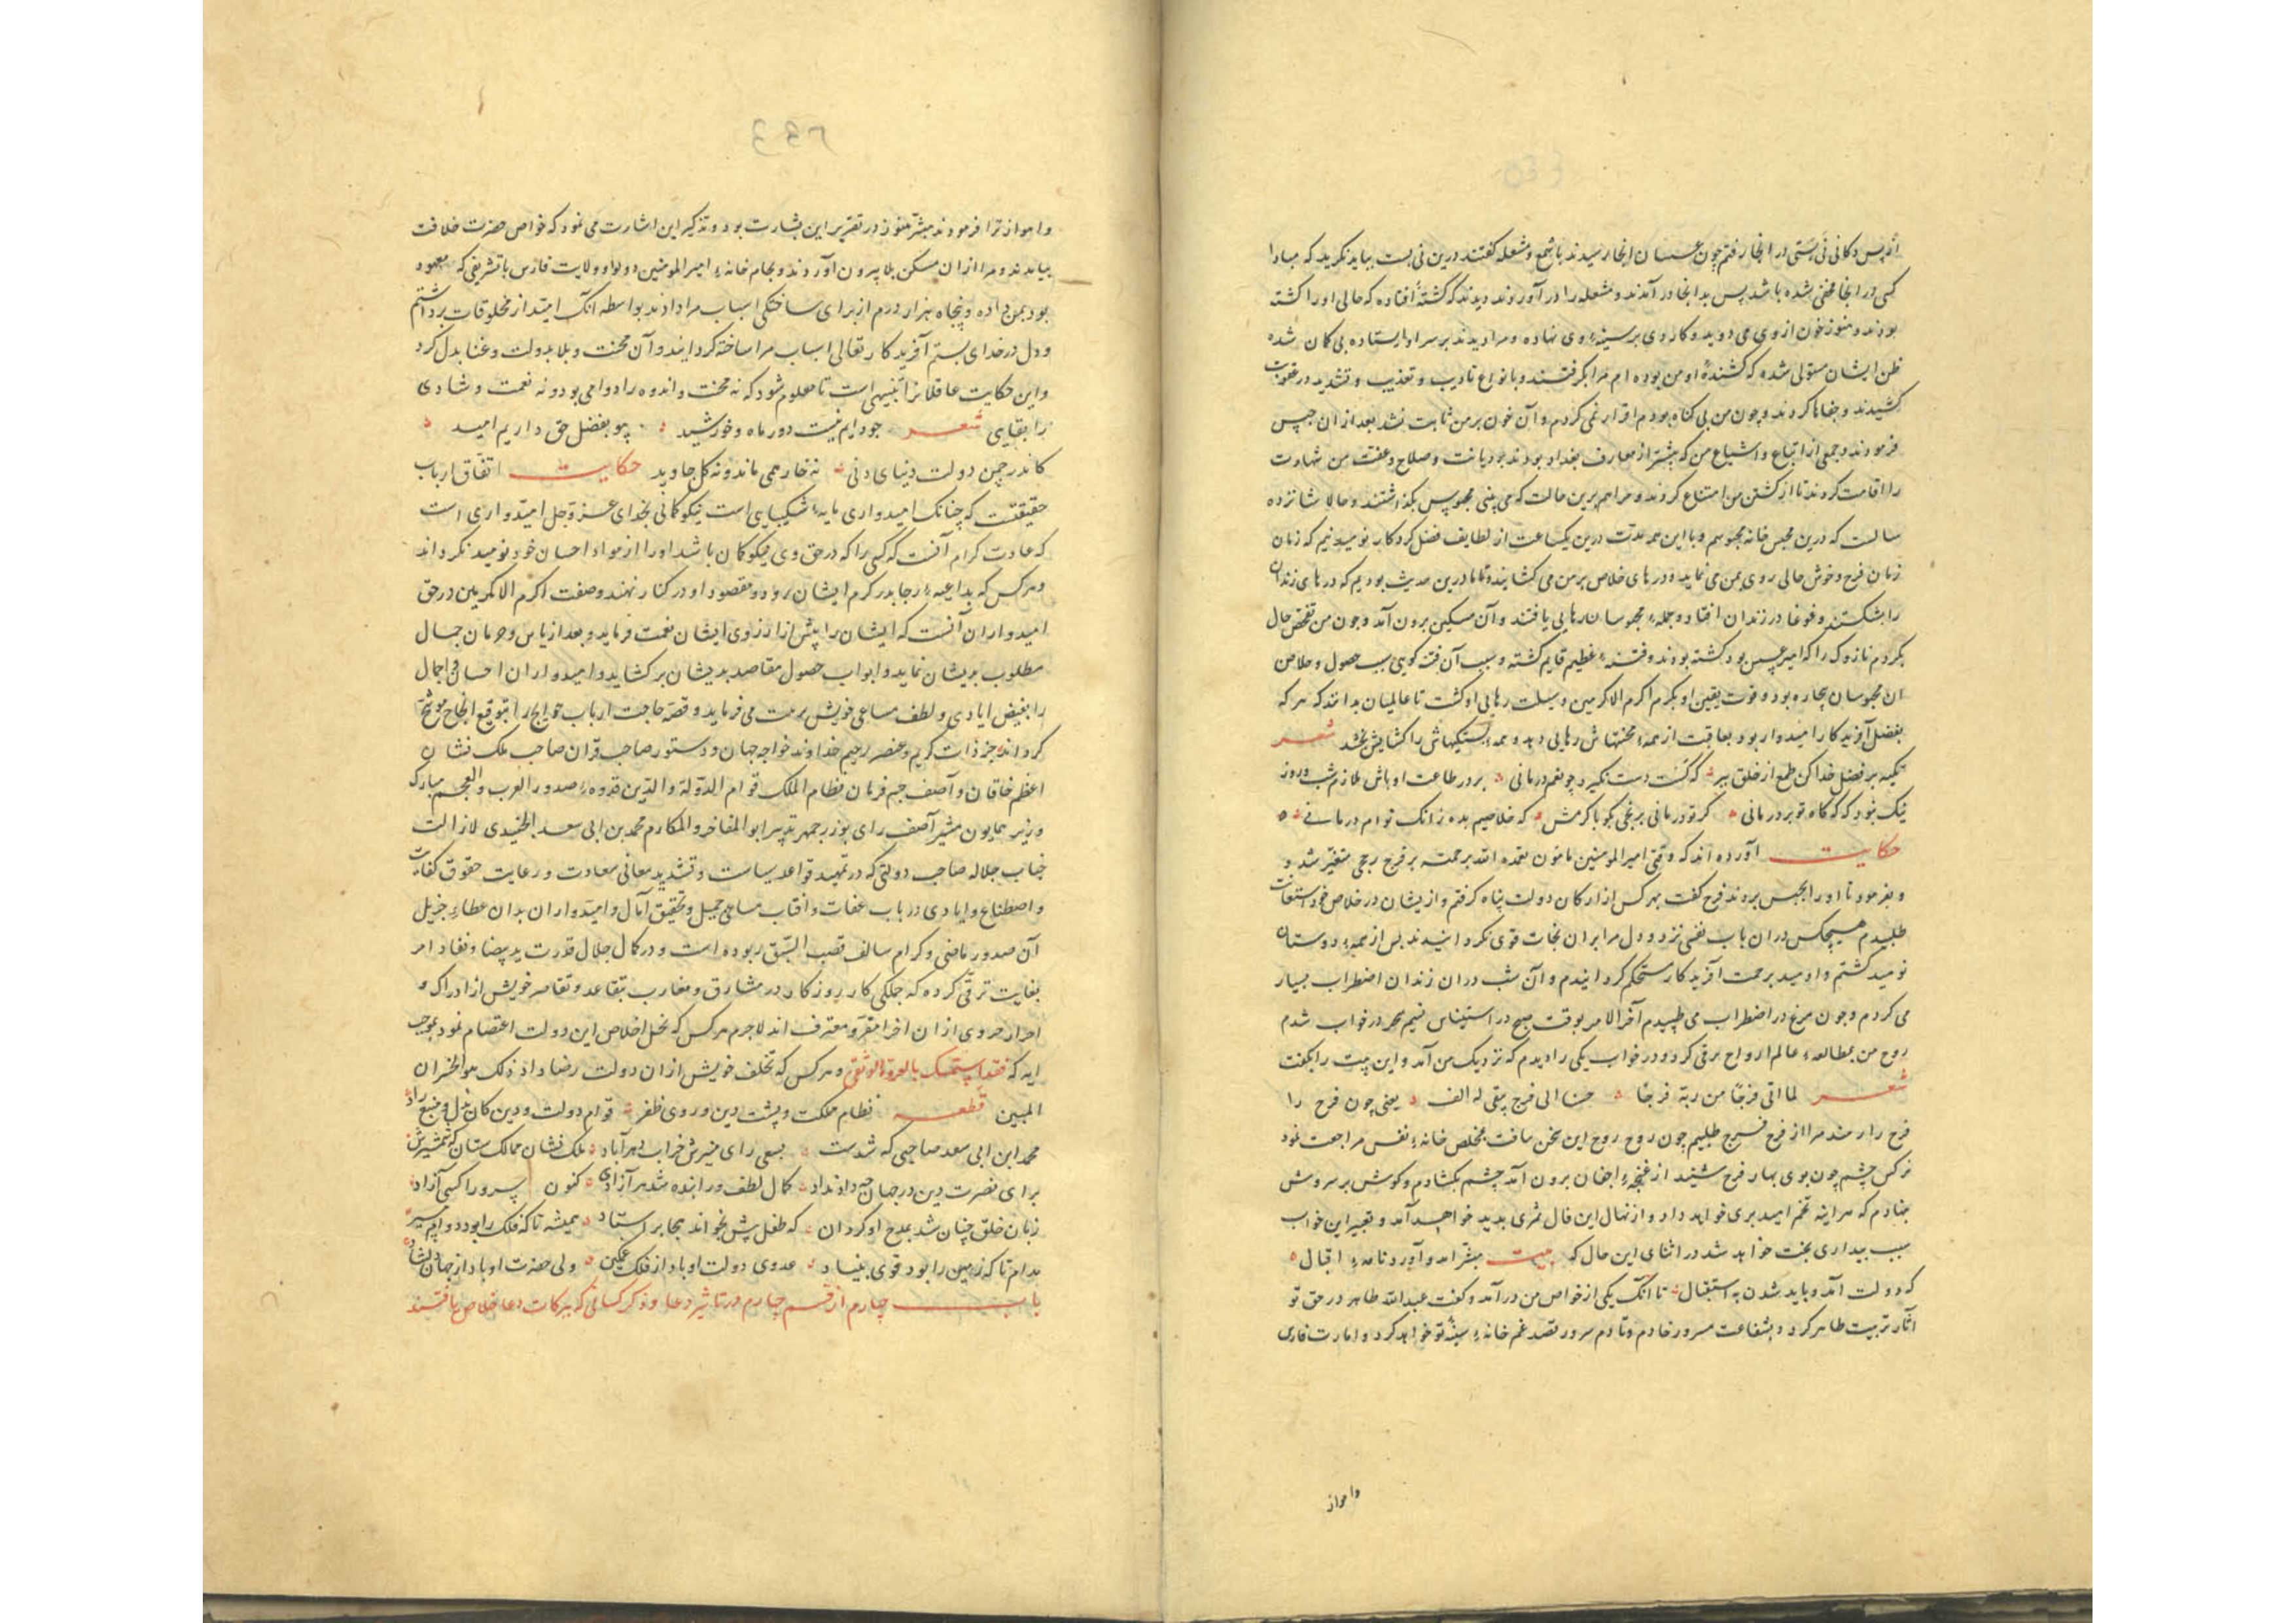 از پس دکانی نی بستی در انجا رفتم چون عسسان انجا رسیدند با شمع و مشعله گفتند درین نی بست بباید نگرید که مبادا
کسی در انجا مخفی شده باشد پس بدانجا در آمدند و مشعله را در آوردند دیدند که کشته افتاده که حالی او را کشته
بودند و هنوز خون از وی می دوید و کاردی بر سینهٔ وی نهاده و مرا دیدند بر سر او ایستاده بی کمان شده
ظن ایشان مستولی شده که کشندهٔ او من بوده ام مرا بگرفتند و بانواع تادیب و تعذیب و تشدید در عقوبت
کشیدند و جفاها کردند و چون من بی کناه بودم اقرار نمی کردم و آن خون بر من ثابت نشد بعد از ان حبس
فرمودند و جمعی از اتباع و اشیاع من که بیشتر از معارف بغداد بودند بر دیانت و صلاح و عفت من شهادت
را اقامت کردند تا از کشتن من امتناع کردند و مرا هم برین حالت که می بینی محبوس بگذاشتند و حالا شانزده
سالست که درین محبس خانه محبوسم و با این همه مدت درین یکساعت از لطایف فضل کردکار نومید نیم که زمان
زمان فرح و خوش حالی روی بمن می نماید و درهای خلاص بر من می کشایند و ما درین حدیث بودیم که درهای زندان
را بشکستند و غوغا در زندان افتاد و جملهٔ محبوسان رهایی یافتند و آن مسکین برون آمد و چون من تفحص حال
بکردم نازوک را که امیر عسس بود کشته بودند و فتنهٔ عظیم قایم کشته و سبب آن فتنه کویی سبب حصول و خلاص
ان محبوسان بیچاره بود و قوت یقین او بکرم اکرم الاکرمین وسیلت رهایی او کشت تا عالمیان بدانند که هر که
بفضل آفریدکار امیدوار بود بعاقبت از همهٔ محنتهاش رهایی دهد و همهٔ بستکیهاش را کشایش بخشد شعر
تکیه بر فضل خدا کن طمع از خلق ببر که کست دست نکیرد چو بغم درمانی بر در طاعت او باش ملازم شب و روز
نیک نبود که که کاه تو بر درمانی کر تو درمانی بر غمی بکو با کرمش که خلاصیم بده زانک توام درمانی
حکایت آورده اند که وقتی امیر المومنین مامون تغمده الله برحمته بر فرج رجحی متغیر شد و
و بفرمود تا او را بحبس بردند فرج گفت بهر کس از ارکان دولت پناه کرفتم و از یشان در خلاص خود استعانت
طلبیدم هیچکس در ان باب نفسی نزد و دل مرا بر ان نجات قوی نکردانیدند پس از همهٔ دوستان
نومید کشتم و اومید برحمت آفریدکار مستحکم کردانیدم و آن شب در ان زندان اضطراب بسیار
می کردم و چون مرغ در اضطراب می طپیدم آخر الامر بوقت صبح در استیناس نسیم سحر در خواب شدم
روح من بمطالعهٔ عالم ارواح برقی کرد و در خواب یکی را دیدم که نزدیک من آمد و این بیت را بکفت
شعر لما اتی فرجا من ربه فرجا جئنا الی فرج یبقی له الف یعنی چون فرح را
فرج را رسد مرا از فرج فسرج طلبیم چون روح روح این سخن سافت بمخلص خانهٔ نفس مراجعت نمود
نرکس چشم چون بوی بهار فرح شنید از غنچهٔ اجفان برون آمد چشم بکشادم و کوش بر سروش
بنهادم که هر اینه تخم امید بری خواهد داد و از نهال این فال ثمری بدید خواهد آمد و تعبیر این خواب
سبب بیداری بخت خواهد شد در اثنای این حال که بیت مبشر امد و آورد نامهٔ اقبال
که دولت آمد و باید شدن به استقبال تا آنک یکی از خواص من در آمد و کفت عبد الله طاهر در حق تو
اثار تربیت ظاهر کرد و بشفاعت مسرور خادم وقادم سرور تصد غم خانهٔ سینهٔ تو خواهد کرد و امارت فارس
وامواز
وامواز ترا فرمودند مبشر هنوز در تقریر این بشارت بود و تذکیر این اشارت می نمود که خواص حضرت خلافت
بیامدند و مرا از ان مسکن بلا بیرون آوردند و بجام خانهٔ امیر المومنین و لواء ولایت فارس با تشریفی که معهود
بود بمن داده و پنجاه هزار درم از برای ساختکی اسباب مرا دادند بواسطه آنک امید از مخلوقات برداشتم
و دل در خدای بستم آفریدکار تعالی اسباب مرا ساخته کردانید و آن محنت و بلا بدولت و غنا بدل کرد
و این حکایت عاقلانرا تنبیهی است تا معلوم شود که نه محنت و اندوه را دوامی بود و نه نعمت و شادی
را بقایی شعر جو دایم نیست دور ماه و خورشید پیو بفضل حق داریم امید
کاندر چمن دولت دنیای دنی نه خار همی ماند و نه کل جاوید حکایت اتفاق ارباب
حقیقتست که چنانک امیدواری مایهٔ شکیبایی است نیکو کمانی بخدای عز و جل امیدواری است
که عادت کرام آنست که کسی را که در حق وی نیکو کمان باشد او را از مواد احسان خود نومید نکرداند
و هر کس که بداعیهٔ رجا بدر کرم ایشان رود مقصود او در کنار نهند و صفت اکرم الاکرمین در حق
امیدواران آنست که ایشان را پیش از آرزوی ایشان نعمت فرماید و بعد از یاس و حرمان جمال
مطلوب بریشان نماید و ابواب حصول مقاصد بدیشان بر کشاید و امیدواران احسان و اجمال
را بفیض ایادی و لطف مساعی خویش برمت می فرماید و قصه حاجت ارباب حوایج را بتوقیع انجاح موشح
کرداند جز ذات کریم و عنصر رحیم خداوند خواجه جهان و دستور صاحب قران صاحب ملک نشان
اعظم خاقان و آصف جم فرمان نظام الملک قوام الدولة والدین قدوهٔ صدور العرب والعجم مبارک
وزیر همایون مشیر آصف رای بوزرجمهر تدبیر ابو المفاخر والمکارم محمد بن ابی سعد الجنیدی لازالت
جناب جلاله صاحب دولتی که در تمهید قواعد سیاست و تشدید معانی معادت و رعایت حقوق کفاءت
و اصطناع و ایادی در باب عفات و اقاب مساعی جمیل و تحقیق آمال و امیدواران بدان عطاء جزیل
آن صدور ماضی و کرام سالف قصب السبق ربوده است و در کمال جلال قدرت ید بیضا و نفاذ امر
بغایت ترقی کرده که جملکی کار روزکار در مشارق و مغارب بتقاعد و تقاصر خویش از ادراک و
احراز جزوی از ان اخر امقر و معترف اند لاجرم هر کس که بحبل اخلاص این دولت اعتصام نمود بموجب
ایه که فقد استمسک بالعروة الوثقی و هر کس که تخلف خویش از ان دولت رضا داد ذلک هو الخسران
المبین قطعه نظام مملکت و پشت دین و روی ظفر قوام دولت و دین کان بذل و منبع راد
محمد ابن ابی سعد صاحبی که شدست بسعی رای منیرش خراب دهر آباد ملک نشان ممالک ستان که شمشیرش
برای نصرت دین در جهان جه داد نداد کمال لطف ورا بنده شد هر آزادی کنون سرو را کسی آزاد
زبان خلق چنان شد بمدح او کردان که طفل پیش بخواند بجا بر استاد همیشه تا که فلک را بود دوام مسیر
مدام تا که زمین را بود قوی بنیاد عدوی دولت او باد از فلک غمکین ولی حضرت او باد از جهان دلشاد
باب چهارم از قسم چهارم در تاثیر دعا و ذکر کسانی که ببرکات دعا خلاص یافتند